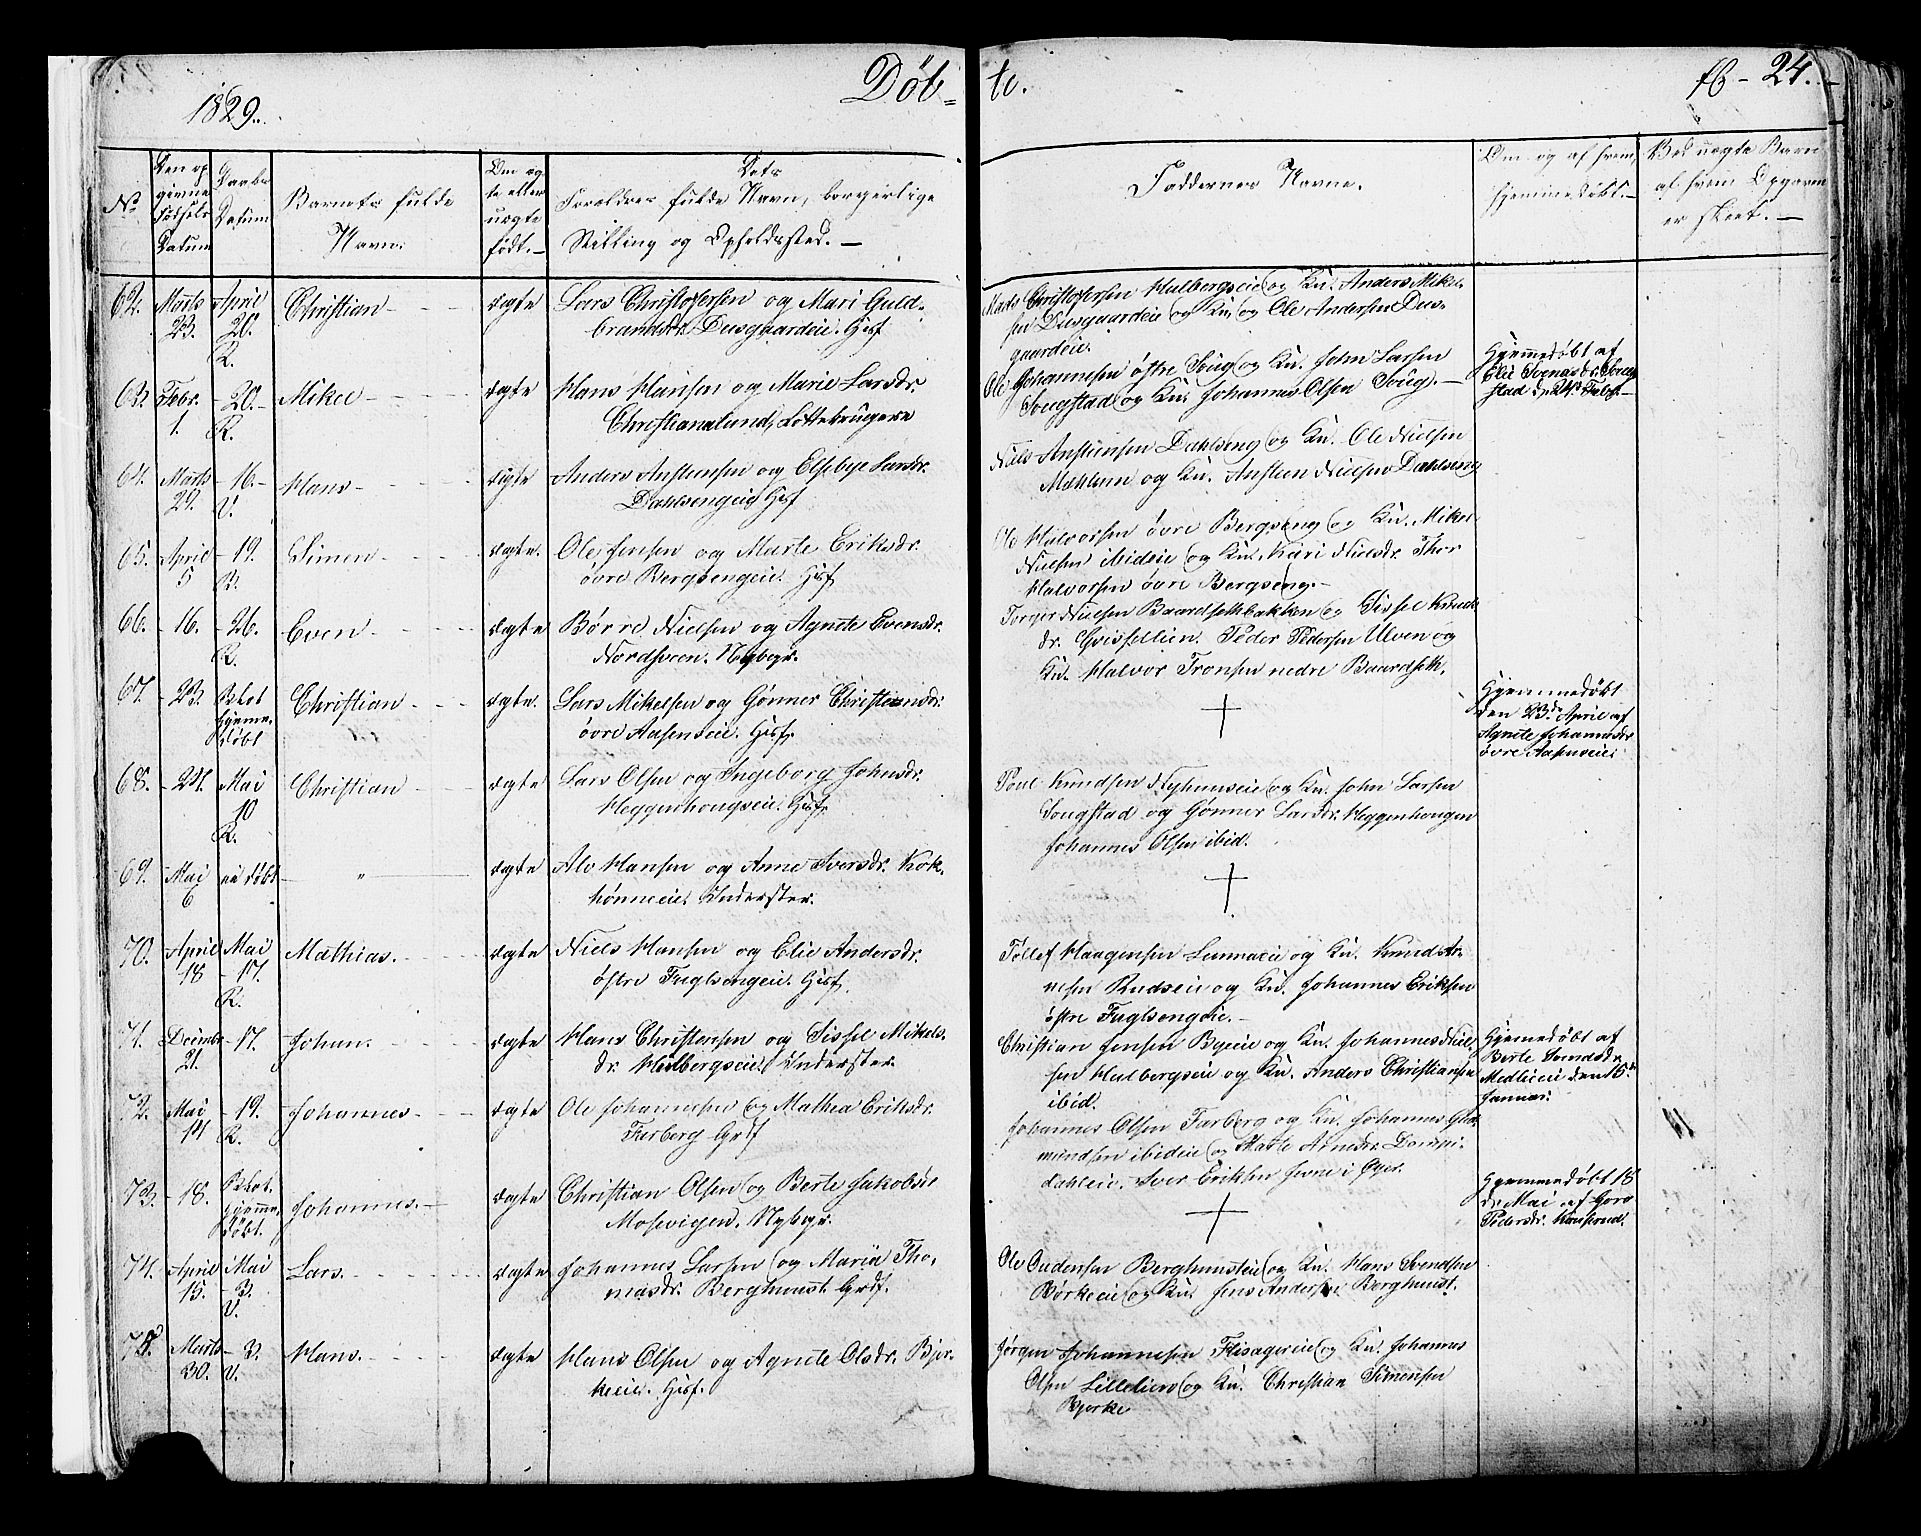 1829.
Döb-
te.
16 - 24.
No
Den op
givne
Födsels
Datum
Daabs
Datum
Barnets fulde
Navn.
Om æg
te eller
uægte
födt.
Dets
Forældres fulde Navn, borgerlige
Stilling og Opholdssted.
Faddernes Navne.
Om og af hvem
hjemmedöbt.
Ved uægte Barn
af hvem Opgaven
er skeet.
62. Marts 23. April 20. R. Christian ægte
Lars Christophersen og Mari Guld-
brandsdr. Husf
Mads Christophersen Halbergseie og Ku. Anders Mikel-
sen og Ku. og Ole Andersen
gaardeie.
63. Febr. 1. 20. R. Mikel ægte
Hans Hansen og Marie Larsdr.
Christianslund, Lottebrugere
Ole Johannesen östre Soug og Ku. John Larsen
Sougstad og Ku. Johannes Olsen Soug.
Hjemmedöbt af
Elie Svensdr. Soug
stad d. 24. Febr.
64. Marts 24. 16. V. Hans ægte
Anders Anstensen og Elsebye Larsdr.
Dahlsengeie Husf
Niels Anstensen Dahlseng og Ku. Ole Nielsen
Mæhlum og Ku. Ansteen Nielsen Dahlseng
65. April 5 19. R. Simen ægte.
Ole Jensen og Marte Eriksdr.
övre Bergsengeie. Husf
Ole Halvorsen övre Bergseng og Ku. Mikel
Nielsen ibideie og Ku. Kari Nielsdr. Thor
Halvorsen övre Bergseng.
66. 16. 26. R. Even ægte
Börre Nielsen og Agnete Evensdr.
Nordsveen. Nybygr.
Torger Nielsen Baardsethbakken og Sissel Knuds
dr. Peder Pedersen Ulven og
Ku. Halvor Tronsen nedre Baardseth.
67. 23. Blot hjemme-
döbt Christian ægte.
Lars Mikelsen og Gönner Christiansdr.
övre Aasenseie. Husf.
Hjemmedöbt
den 23de April af
Agnete Johannesdr.
övre Aasenseie.
68. 24. Mai 10 R. Christian ægte
Lars Olsen og Ingeborg Johnsdr.
Heggenhougseie. Husf.
Poul Knudsen Nyhuuseie og Ku. John Larsen
Sougstad og Gönner Larsdr. Heggenhougen
Johannes Olsen ibid.
69. Mai 6 ei döbt " ægte
Alv Hansen og Anne Iversdr. Kok-
hönneeie. Inderster.
70. April 18 Mai 17. R. Mathias. ægte
Niels Hansen og Elie Andersdr.
östre Fuglsengeie. Husf.
Tollef Haagensen Lunnaeie og Ku. Knud Ar-
nesen Rudseie og Ku. Johannes Eriksen
östre Fuglsengeie.
71. Decembr. 21. 17. Johan. ægte
Hans Christensen og Sissel Mikels-
dr. Halbergseie. Inderster.
Christian Jensen Byeeie og Ku. Johannes Niel-
sen Halbergseie og Ku. Anders Christiansen
ibid.
Hjemmedöbt af
Berte
Medlieeie den 15de
Januar.
72. Mai 14 19. R. Johannes ægte
Ole Johannesen og Mathea Eriksdr.
Farberg Grdf
Johannes Olsen Farberg og Ku. Johannes Gud-
mundsen ibideie og Marte Arnesdr.
dahleie. Iver Eriksen Jevne i Öyer.
73. 18. Blot
hjemme
döbt. Johannes. ægte
Christian Olsen og Berte Jakobsdr
Mosevigen. Nybygr.
Hjemmedöbt 18
de Mai af Goro
Pedersdr.
74. April 15. Mai 3. V. Lars. ægte
Johannes Larsen og Maria Tho-
masdr. Berghuust. Grdf.
Ole Oudensen Berghuusteie og Ku. Hans Svendsen
Börkeeie og Ku. Jens Andersen Berghuust.
75. Marts 30. 3. V. Hans. ægte
Hans Olsen og Agnete Olsdr. Bjer-
keeie. Husf.
Jörgen Johannesen Flisagereie og Ku. Johannes
Olsen Lillelien og Ku. Christian Simensen
Bjerke